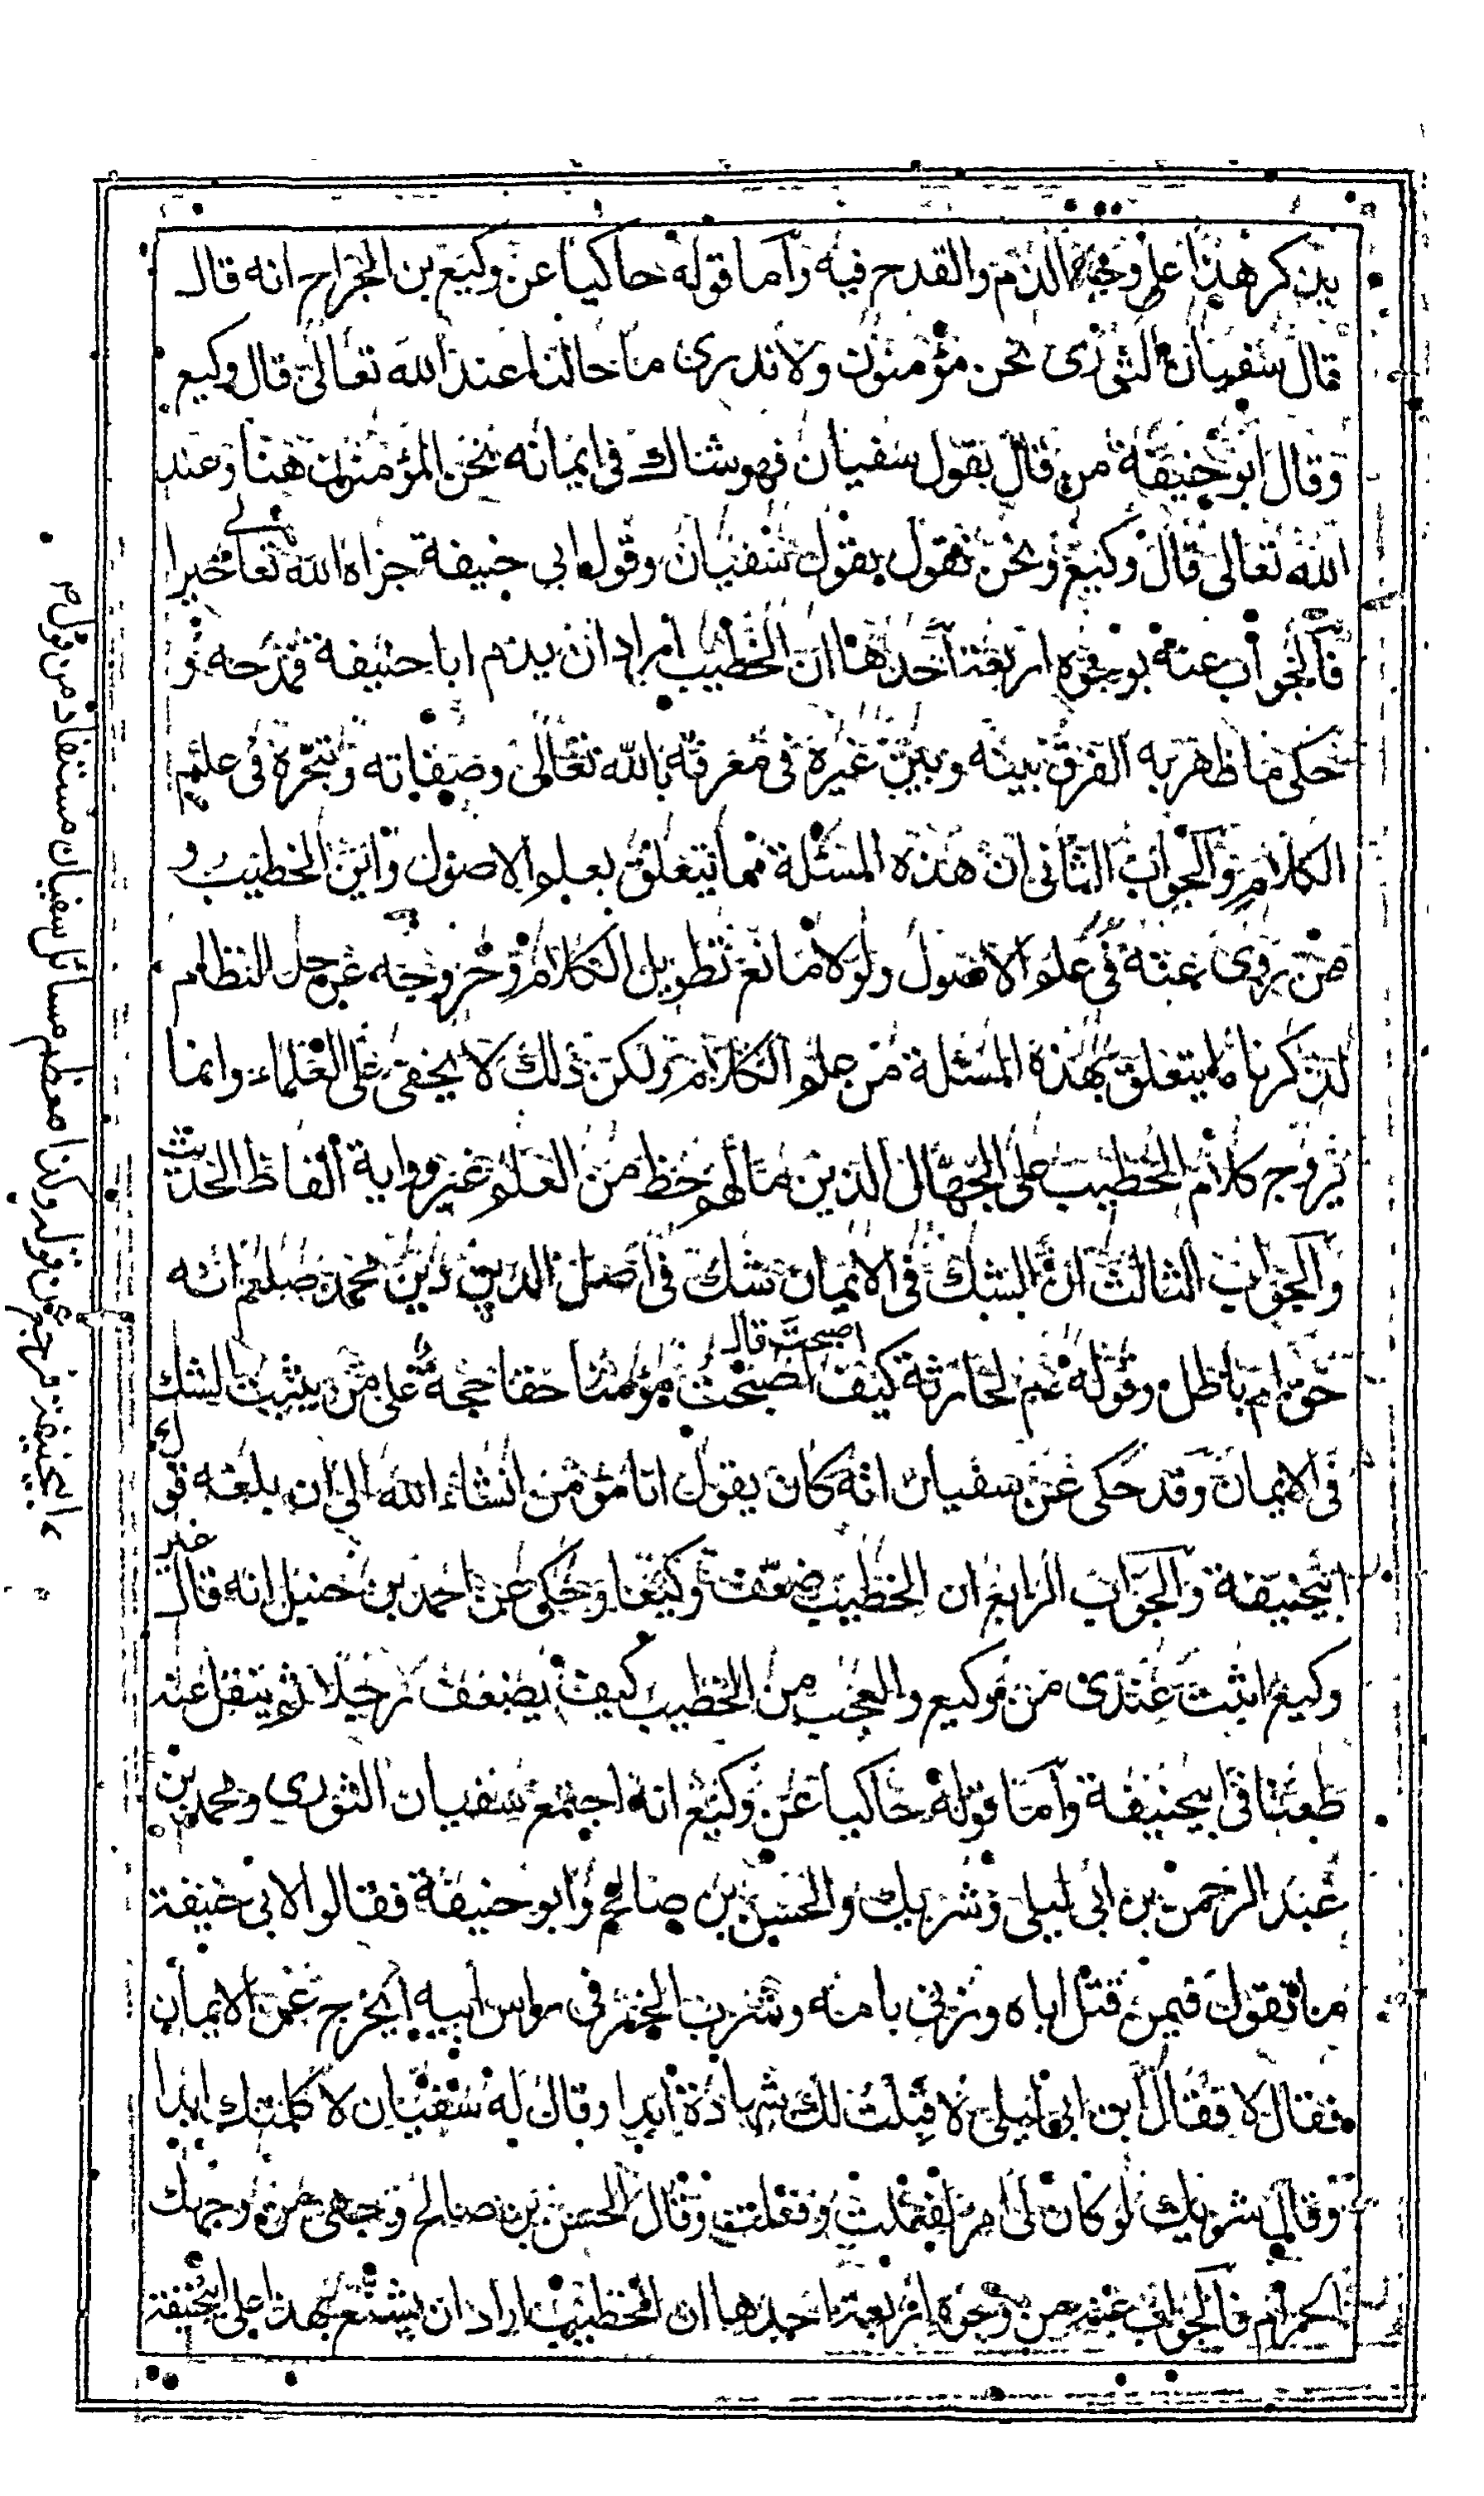 يذكر هذا على وجه الذم والقدح فيه وأما قوله حاكيا عن وكيع بن الجراح انه قال
قال سفيان الثورى نحن مؤمنون ولا ندرى ما حالنا عند الله تعالى قال وكيع
وقال ابو حنيفة من قال بقول سفيان فهو شاك فى ايمانه نحن المؤمنون هنا وعند
الله تعالى قال وكيع ونحن نقول بقول سفيان وقول ابى حنيفة جزاه الله تعالى خيرا
فالجواب عنه بوجوه اربعة احدها ان الخطيب اراد ان يذم ابا حنيفة فمدحه
حكى ما ظهر به الفرق بينه وبين غيره فى معرفة بالله تعالى وصفاته وتبحره فى علم
الكلام والجواب الثانى ان هذه المسئلة مما يتعلق بعلم الاصول واين الخطيب و
من روى عنه فى علم الاصول ولولا مانع تطويل الكلام وخروجه عن حد النظام
لذكرنا ما يتعلق بهذه المسئلة من علم الكلام ولكن ذلك لا يخفى على العلماء وانما
يروج كلام الخطيب على الجهال الذين ما لهم حظ من العلم غير رواية الفاظ الحديث
والجواب الثالث ان الشك فى الايمان شك فى اصل الدين دين محمد صلعم انه
حق ام باطل وقوله عم لحارثة كيف اصبحت قال اصبحت مؤمنا حقا حجة على من يثبت الشك
فى الايمان وقد حكى عن سفيان انه كان يقول انا مؤمن انشاء الله الى ان بلغه قول
ابيحنيفة والجواب الرابع ان الخطيب ضعف وكيعا وحكى عن احمد بن حنبل انه قال غير
وكيع اثبت عندى من وكيع والعجب من الخطيب كيف يضعف رجلا ثم ينقل عنه
طعنا فى ابيحنيفة وأما قوله حاكيا عن وكيع انه اجتمع سفيان الثورى ومحمد بن
عبد الرحمن بن ابى ليلى وشريك والحسن بن صالح وابو حنيفة فقالوا لابى حنيفة
ما تقول فيمن قتل اباه وزنى بامه وشرب الخمر فى راس ابيه ايخرج عن الايمان
فقال لا فقال ابن ابى ليلى لا قبلت لك شهادة ابدا وقال له سفيان لا كلمتك ابدا
وقال شريك لو كان لى امر لفعلت وفعلت وقال الحسن بن صالح وجهى من وجهك
الحرام فالجواب عنه من وجوه اربعة احدها ان الخطيب اراد ان يشنع بهذا على ابيحنيفة